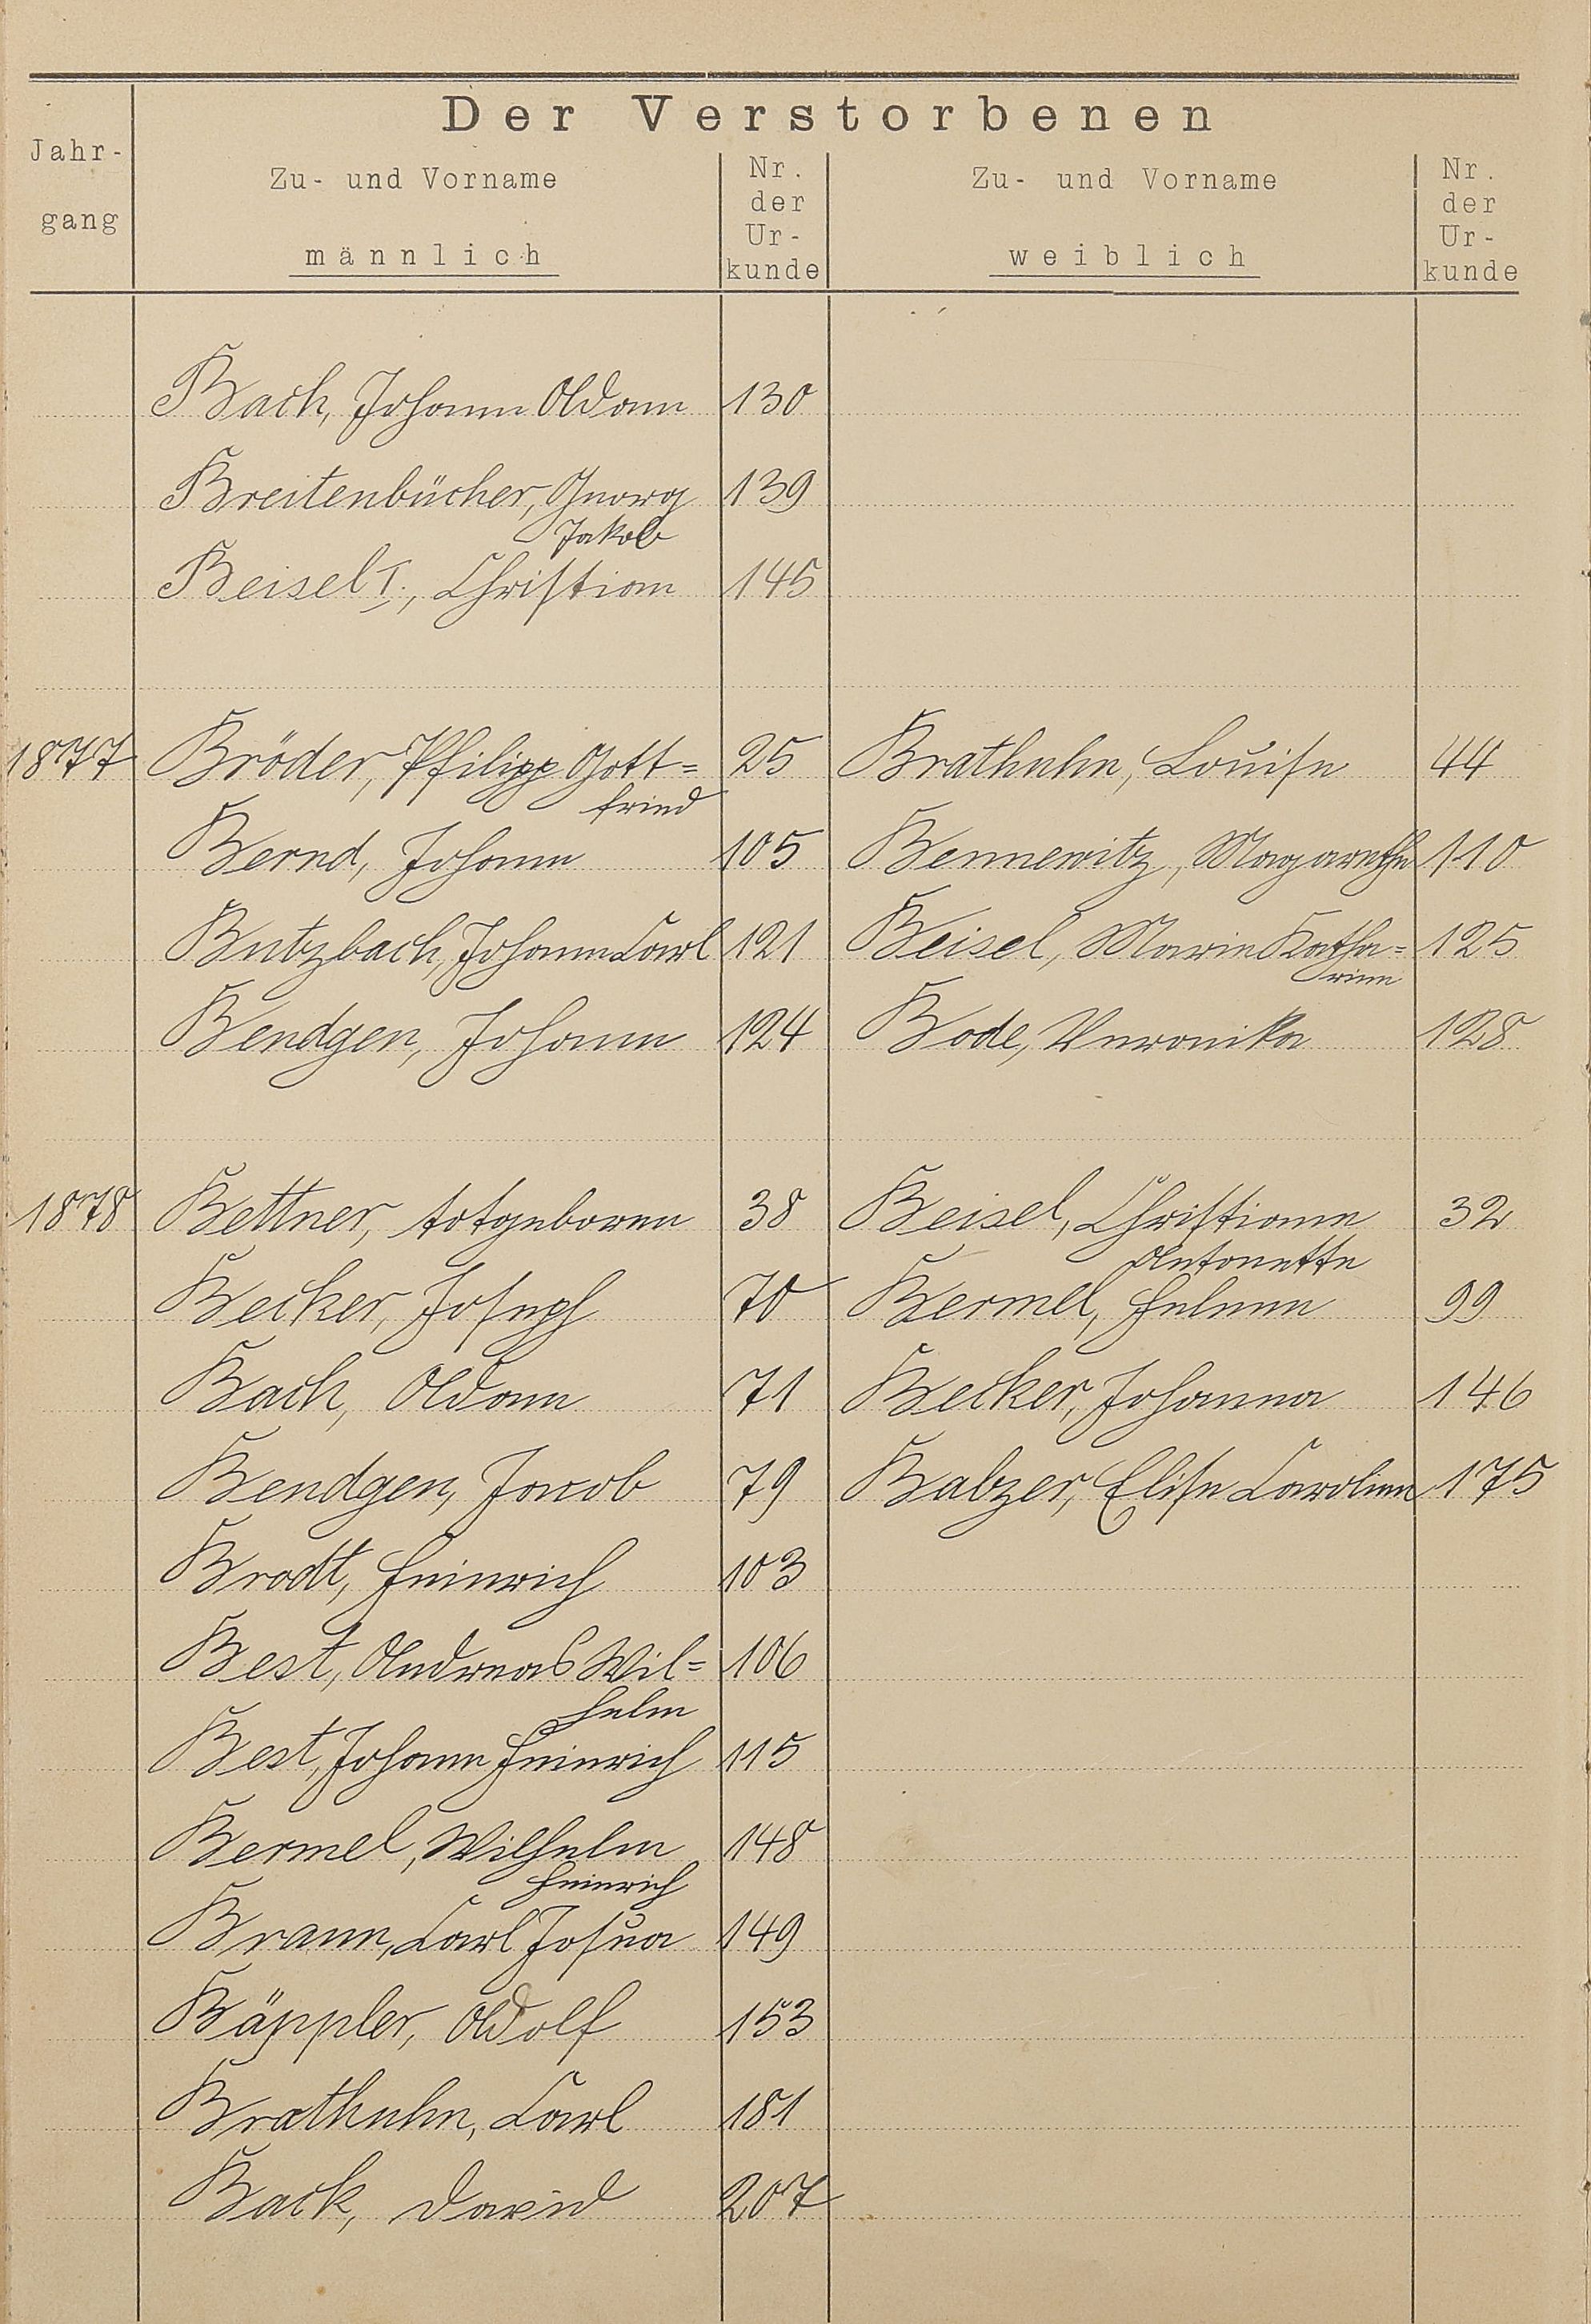 Der Verstorbenen
Jahr-
gang
Zu- und Vorname
männlich
Nr.
der
Ur-
kunde
Zu- und Vorname
weiblich
Nr.
der
Ur-
kunde
Bach, Johann Adam 130
Breitenbücher, Georg 139
Jakob
Beisel I., Christian 145
1877 Bröder, Philipp Gott= 25 Brathuhn, Louise 44
fried
Bernd, Johann 105 Bennewitz, Magarethe 110
Butzbach, Johann Carl 121 Beisel, Marie Katha= 125
rine
Bendgen, Johann 124 Bode, Veronika 128
1878 Bettner, totgeboren 38 Beisel, Christiane 32
Antonette
Becker, Joseph 70 Bermel, Helene 99
Bach, Adam 71 Becker, Johanna 146
Bendgen, Jacob 79 Balzer, Elise Caroline 175
Brodt, Heinrich 103
Best, Andreas Wil= 106
helm
Best, Johann Heinrich 115
Bermel, Wilhelm 148
Heinrich
Braun, Carl Josua 149
Bäppler, Adolf 153
Brathuhn, Carl 181
Back, David 207